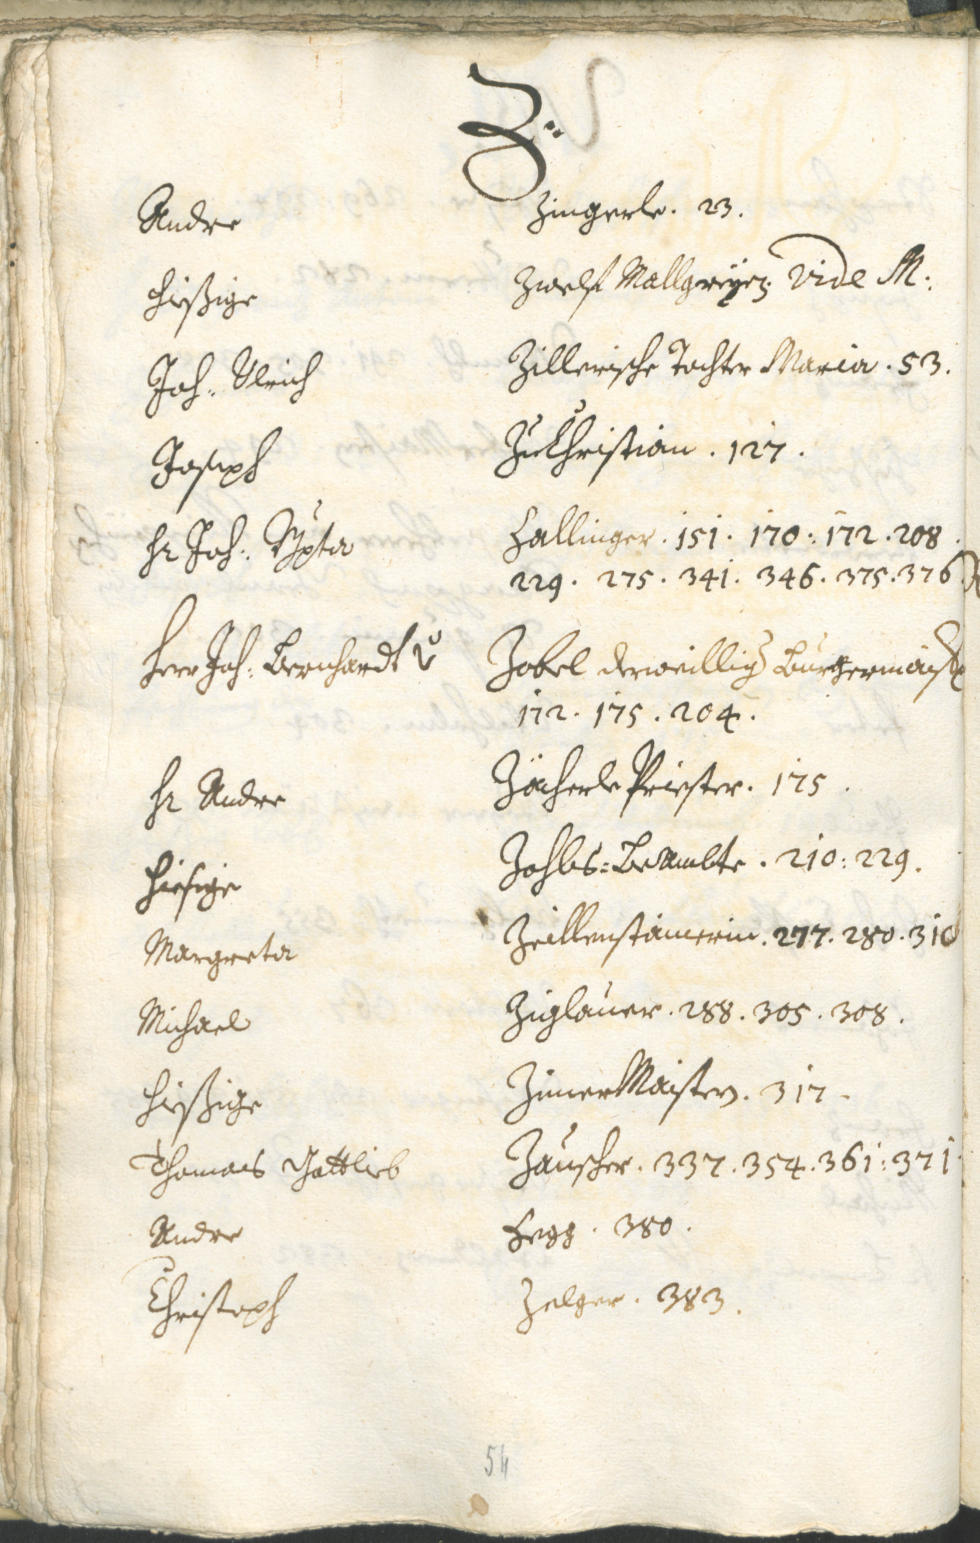 Z:
Andre Zingerle. 23.
hießige Zwelf Mallgreyen Vide M:
Joh: Ulrich Zillerische Tochter Maria. 53.
Joseph Zu Christian. 127.
Hr Joh: Bpta Zallinger. 151. 170. 172. 208.
229. 275. 341. 346. 375. 376.
Herr Joh: Bernhardt v Zobel derweillig Burgermaister
172. 175. 204.
Hr Andre Zächerle Priester. 175.
hiesige Zohls=Beambte. 210. 229.
Margreta 277. 280. 310
Michael Ziglauer. 288. 305. 308.
hießige ZimerMaister. 317.
Thomas Gottlieb Zauscher. 337. 354. 361. 371.
Andre Zegg. 380.
Christoph Zelger. 383.
54